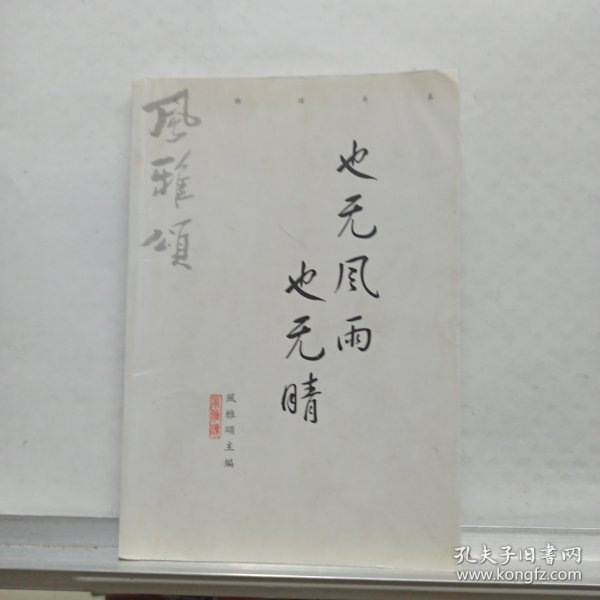 風雅頌
也无风雨
也无晴
風雅頌主编
孔夫子旧书网
www.kongfz.com